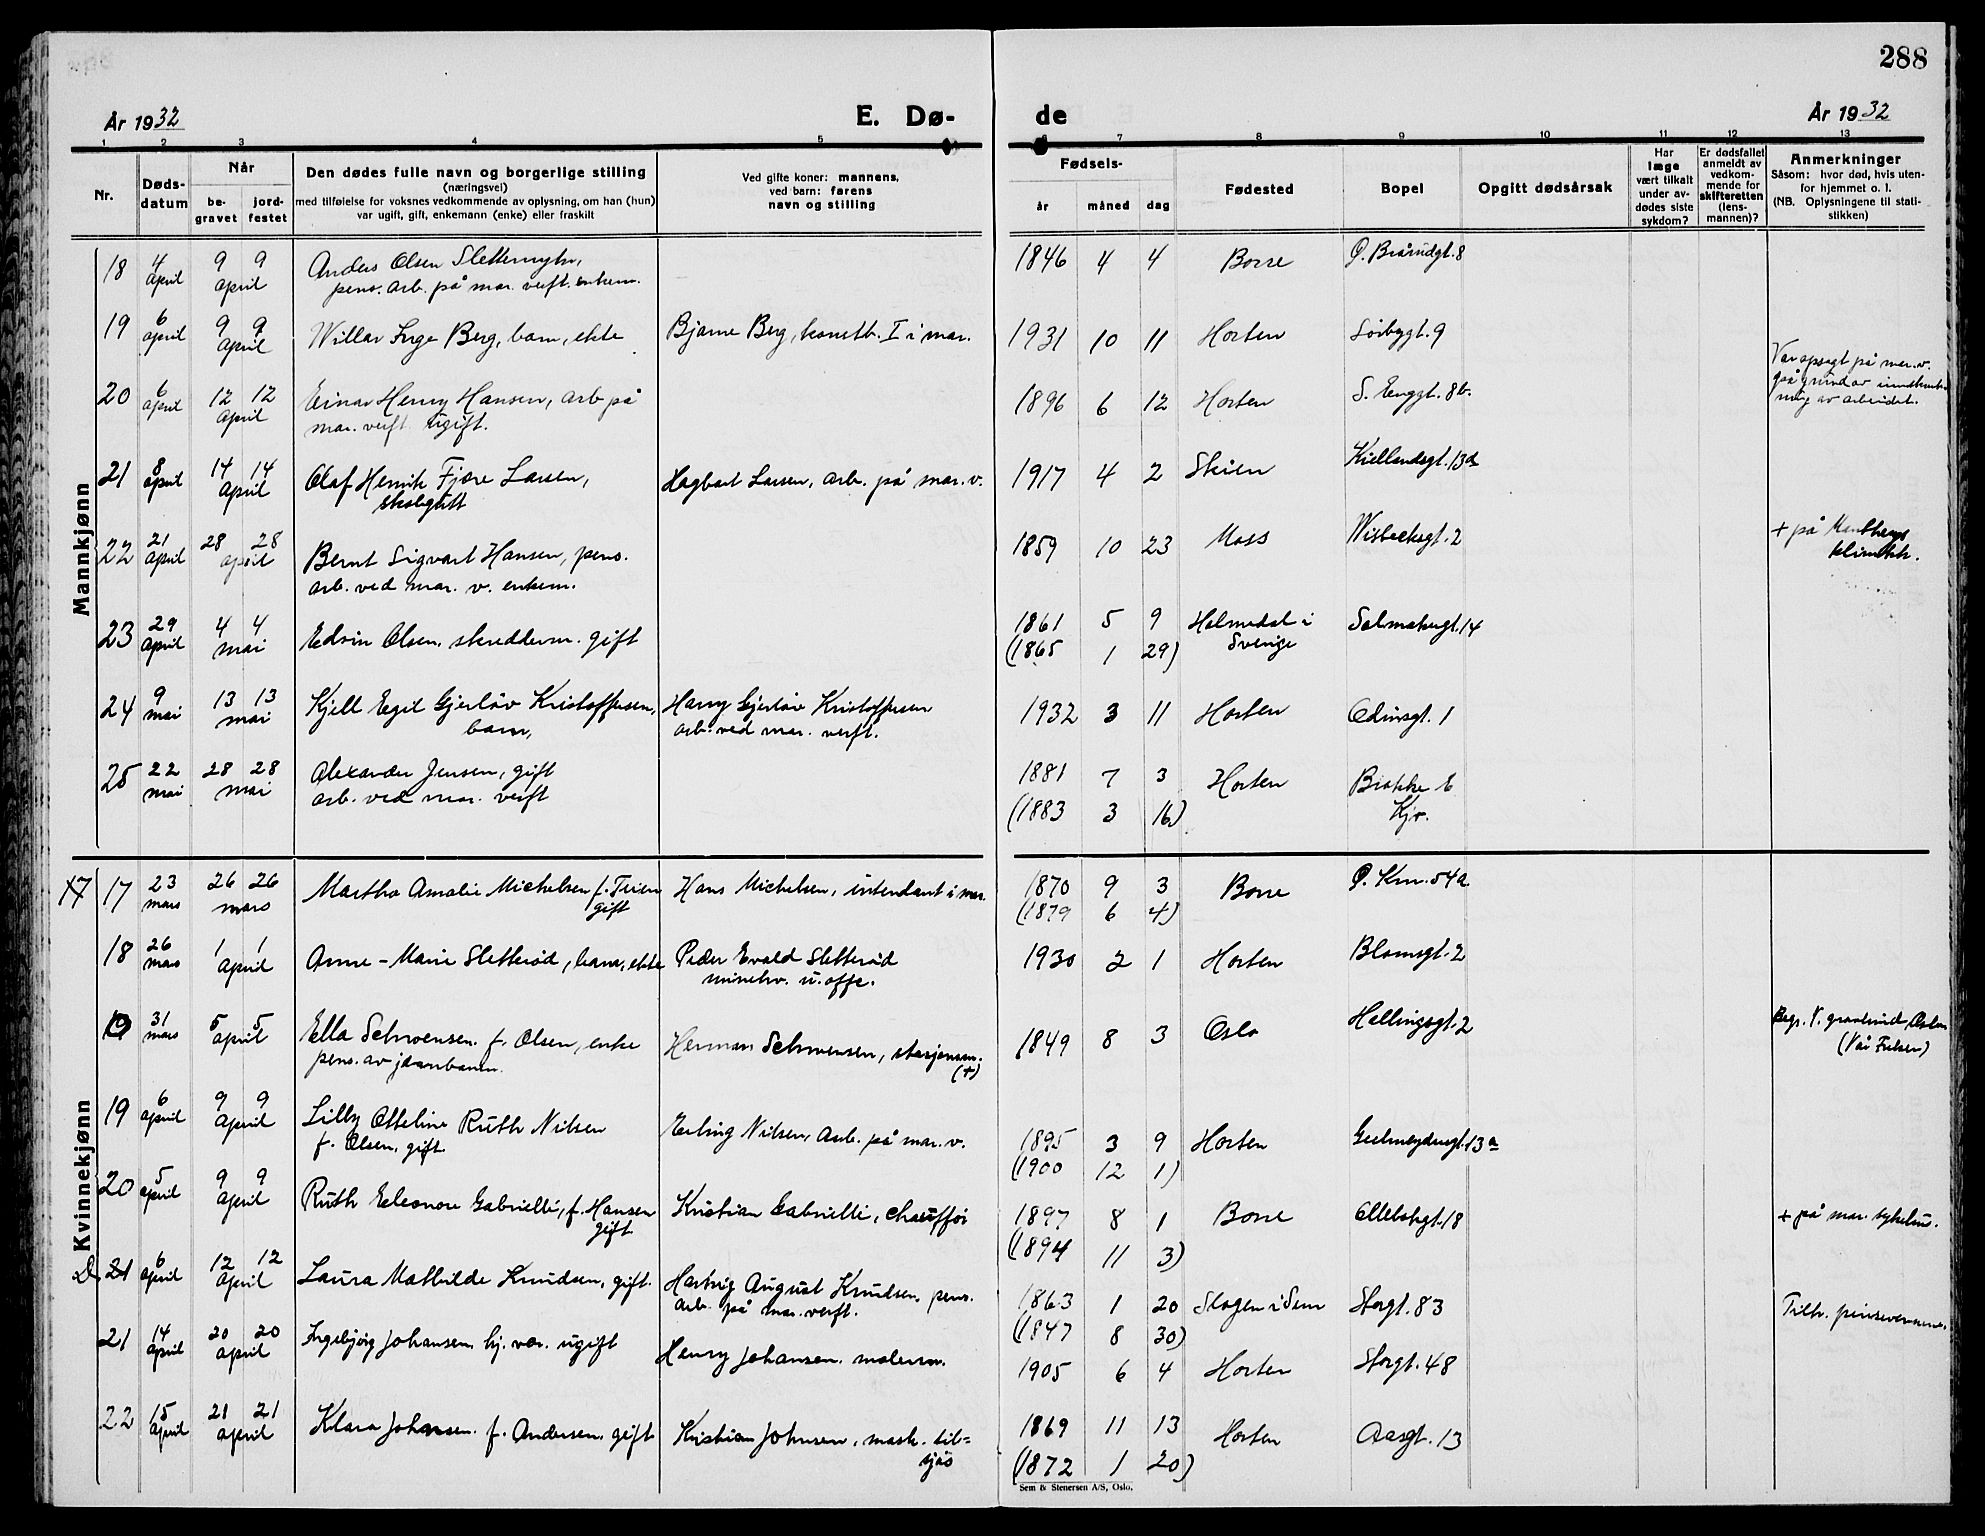 288
År 1932 E. Dø- de År 1932
1 2 3 4 5 6 7 8 9 10 11 12 13
Nr.
Døds-
datum
Når
be-
gravet
jord-
festet
Den dødes fulle navn og borgerlige stilling
(næringsvei)
med tilføielse for voksnes vedkommende av oplysning, om han (hun)
var ugift, gift, enkemann (enke) eller fraskilt
Ved gifte koner: mannens,
ved barn: farens
navn og stilling
Fødsels-
år måned dag
Fødested
Bopel
Opgitt dødsårsak
Har
læge
vært tilkalt
under av-
dødes siste
sykdom?
Er dødsfallet
anmeldt av
vedkom-
mende for
skifteretten
(lens-
mannen)?
Anmerkninger
Såsom: hvor død, hvis uten-
for hjemmet o. l.
(NB. Oplysningene til stati-
stikken)
Mannkjønn
18 4 april 9 9 april Anders Olsen 1846 4 4 Borre
pens. arb. på mar. verft. enkem.
19 6 april 9 9 april Willar Inge Berg, barn, ekte Bjarne Berg, konstb. I i mar. 1931 10 11 Horten Sørbygt. 9
20 6 april 12 12 april Einar Henry Hansen, arb på 1896 6 12 Horten S. Enggt. 8b. Var opsagt på mar. v.
mar. verft ugift. på grund av
av arbeidet.
21 8 april 14 14 april Olaf Henrik Fjære Larsen, Hagbart Larsen, arb. på mar. v. 1917 4 2 Skien Kiellandsgt. 13d
skolegutt
22 21 april 28 28 april Bernt Sigvart Hansen, pens. 1859 10 23 Moss Wisbecksgt. 2 + på
arb. ved mar. v. enkem.
23 29 april 4 4 mai Edvin Olsen, skredderm. gift 1861 5 9 Holmedal i
Sverige Salmakergt. 14
(1865 1 29)
24 9 mai 13 13 mai Kjell Egil Gjerløv Kristoffersen, Harry Gjerløv Kristoffersen 1932 3 11 Horten Odinsgt. 1
barn, arb. ved mar. verft.
25 22 mai 28 28 mai Alexander Jensen, gift 1881 7 3 Horten Brakke E
Kjv.
arb. ved mar. verft
(1883 3 16)
Kvinnekjønn
17 17 23 mars 26 26 mars Martha Amalie Michelsen f. gift Hans Michelsen, intendant i mar. 1870 9 3 Borre Ø. Km. 54a
(1879 6 4)
18 26 mars 1 1 april Anne-Marie Sletterød, barn, ekte Peder Evald Sletterød 1930 2 1 Horten Blomsgt. 2
minehv. u. offc.
31 mars 5 5 april Ella Schwensen. f. Olsen, enke Herman Schwensen, stasjonsm.
(+) 1849 8 3 Oslo Hellingsgt. 2 Begr. V. gravlund,
(Vår Frelser)
pens. av jernbanen.
19 6 april 9 9 april Lilly Otteline Ruth Nilsen Erling Nilsen, Arb. på mar. v. 1895 3 9 Horten Geelmeydensgt. 13a
f. Olsen, gift
(1900 12 1)
20 5 april 9 9 april Ruth Eleonore Gabrielli, f. Hansen
gift Kristian Gabrielli, chauffør 1897 8 1 Borre Ollebakgt. 18 + på mar. sykehu.
(1894 11 3)
D. 21 6 april 12 12 april Laura Mathilde Knudsen, gift. Hartvig August Knudsen, pens. 1863 1 20 Slagen i Sem Storgt. 83 Tilh. pinsevennene.
arb. på mar. verft.
(1847 8 30)
21 14 april 20 20 april Ingebjørg Johansen, hj. vær. ugift Henry Johansen. malerm. 1905 6 4 Horten Storgt. 48
22 15 april 21 21 april Klara Johnsen. f. Andersen, gift Kristian Johnsen, mask. til-
sjøs 1869 11 13 Horten Aasgt. 13
(1872 1 20)
Sem & Stenersen A/S, Oslo.